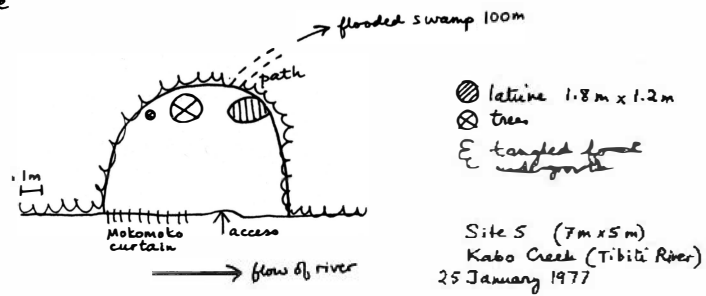 flooded swamp 100m
path
latrine 1.8m x 1.2m
trees
tangled forest
undergrowth
1m
Mokomoko
curtain
access
flow of river
Site 5 (7m x 5m)
Kabo Creek (Tibiti River)
25 January 1977